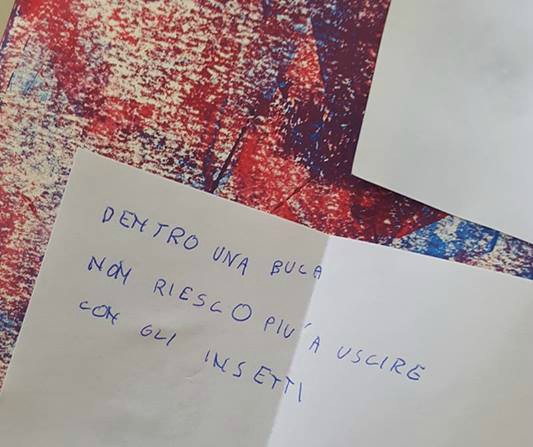 DENTRO UNA BUCA
NON RIESCO PIU' A USCIRE
CON GLI INSETTI